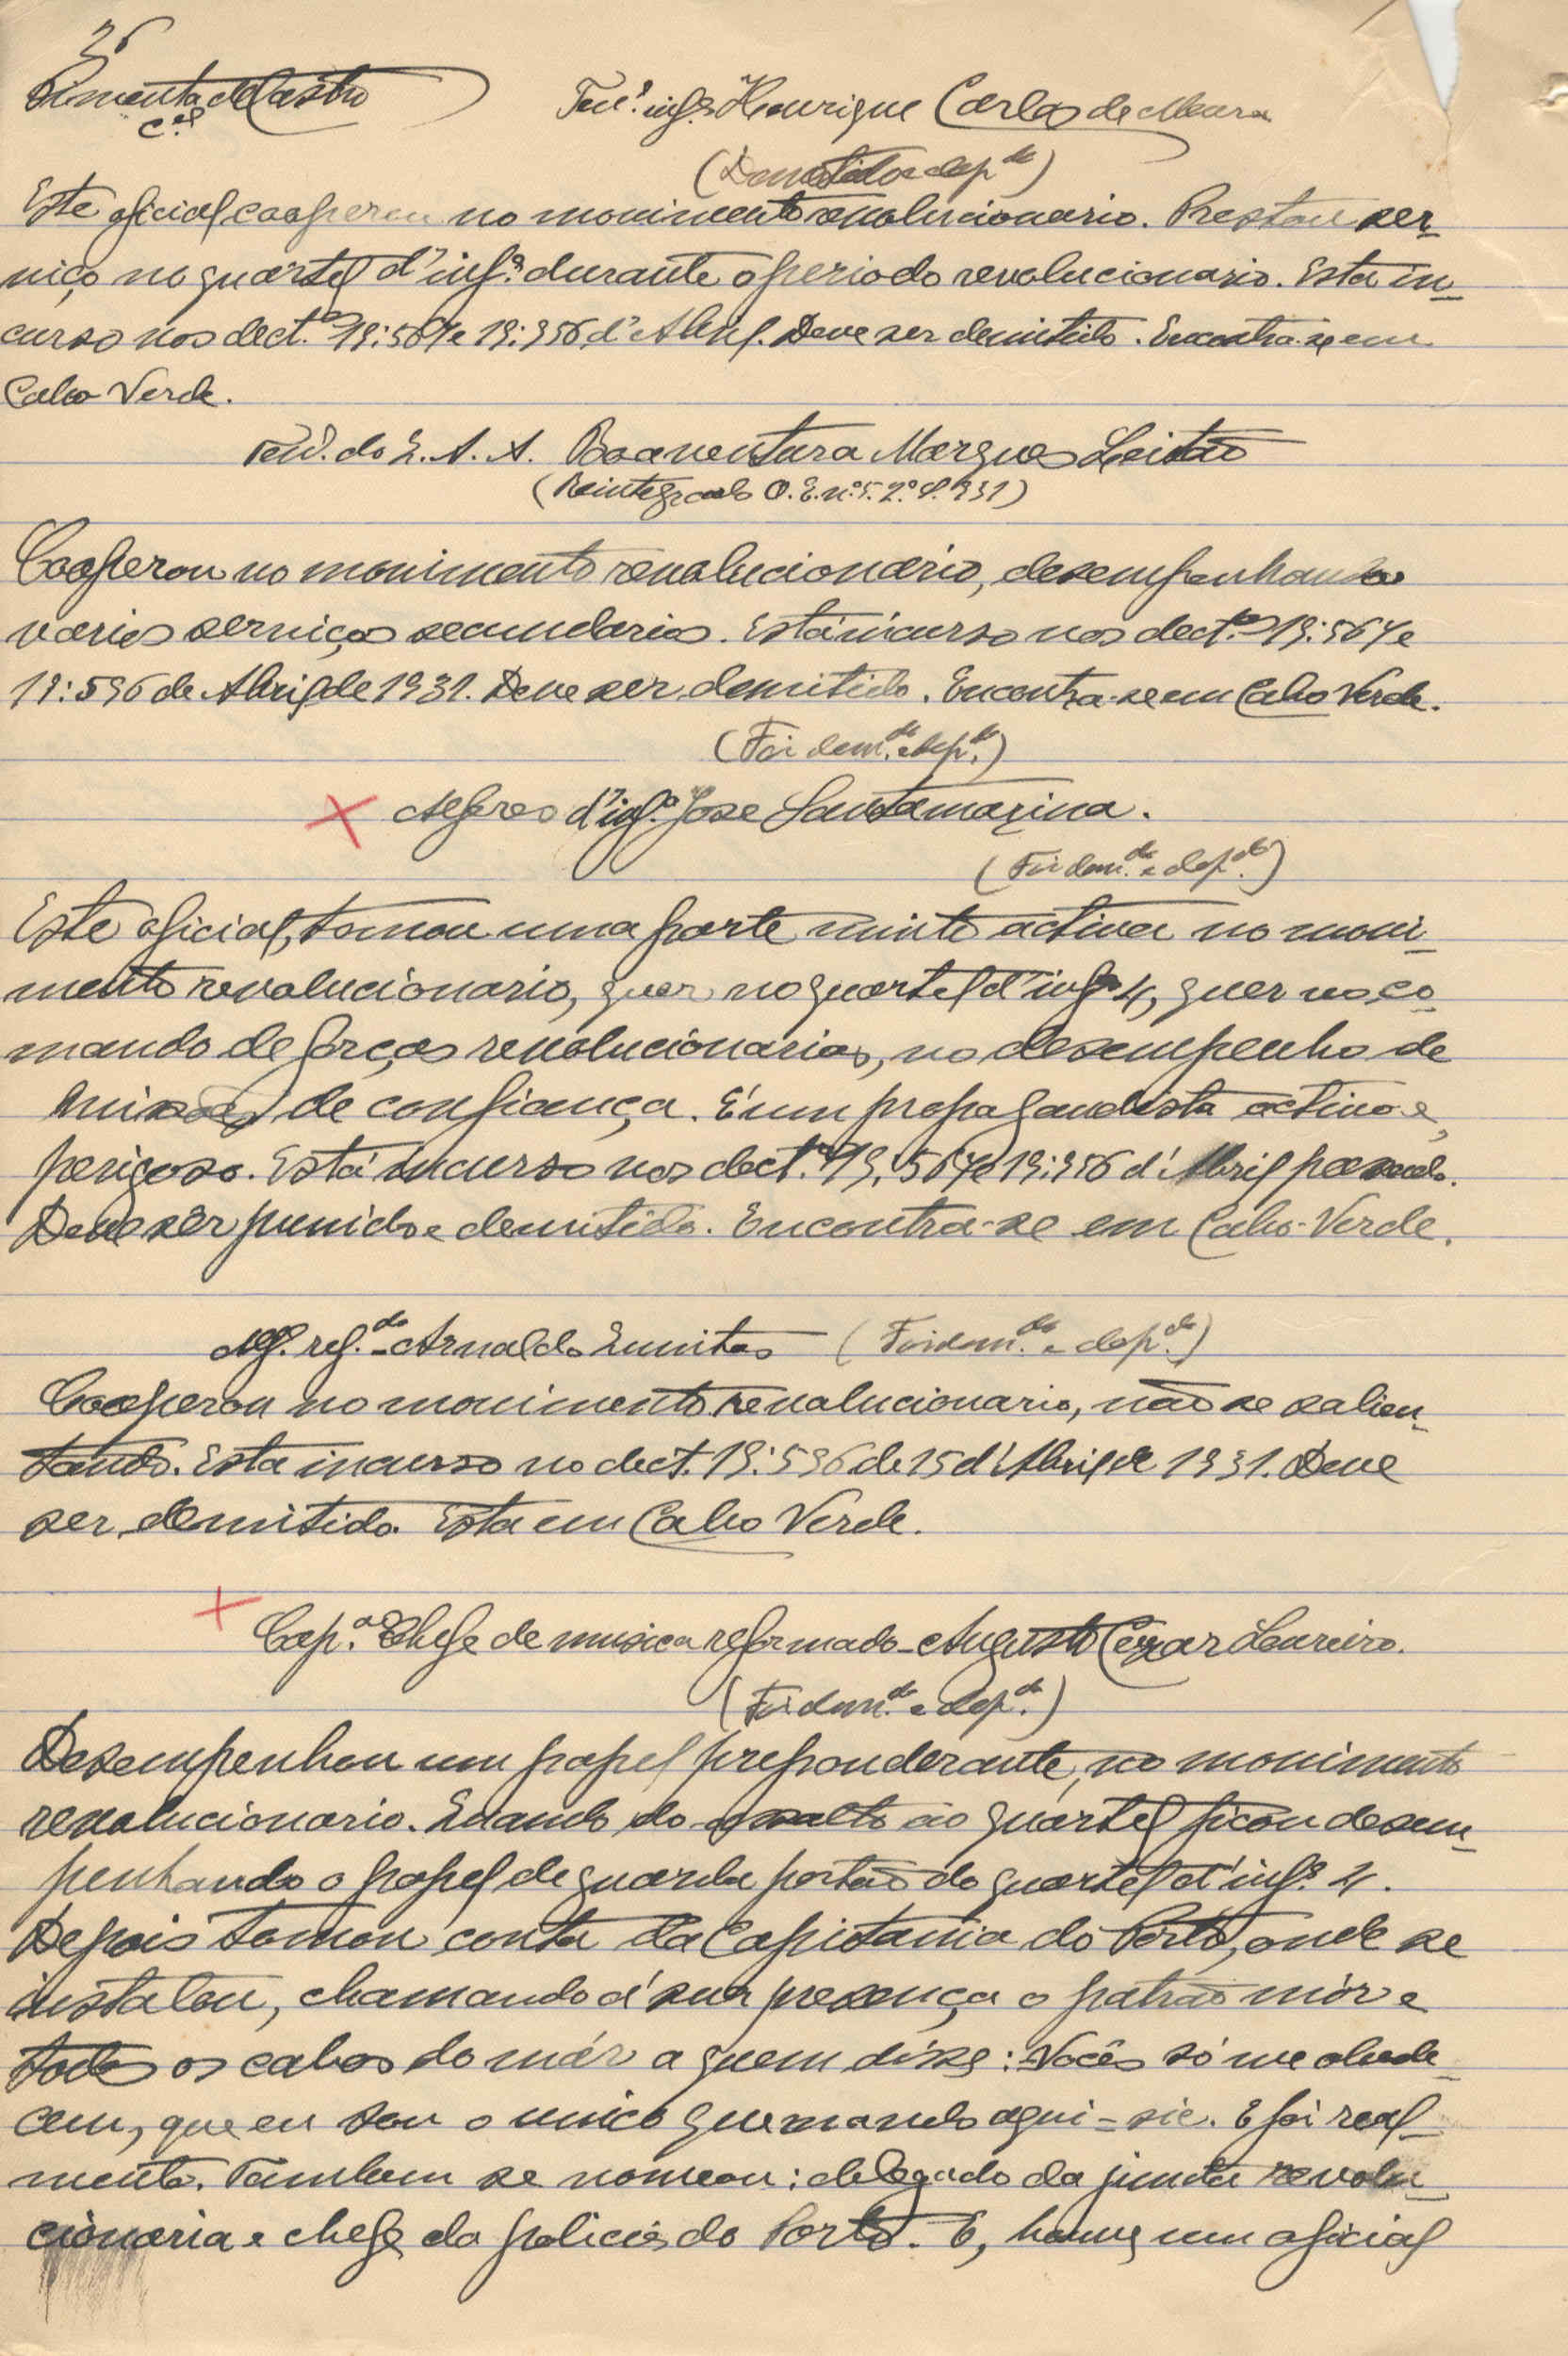 26
Pimenta de Castro
C.el
Ten.e inf.a Henrique Carlos de Moura
(Demitido e dep.do)
Este oficial cooperou no movimento revolucionario. Prestou ser-
viço no quartel d'inf.a durante o periodo revolucionario. Esta in-
curso nos dect.os 19:567 e 19:956 d'Abril. Deve ser demitido. Encontra-se em
Cabo Verde.
Ten. do Q. A. A. Boaventura Marques Leitão
(Reintegrado O. E. nº 5. 2ª S. 931)
Cooperou no movimento revolucionário, desempenhando
varios serviços secundarios. Está incurso nos dect.os 19:567 e
19:596 de Abril de 1931. Deve ser demitido. Encontra-se em Cabo Verde.
(Foi dem.do e dep.do)
Alferes d'inf.a Jose Santamarina.
(Foi dem.do e dep.do)
Este oficial, tomou uma parte muito activa no movi-
mento revolucionario, quer no quartel d'inf.a 4, quer no co-
mando de forças revolucionarias, no desempenho de
missões de confiança. É um propagandista activo e
perigoso. Está incurso nos dect.os 19,567 e 19:956 d'Abril passado.
Deve sêr punido e demitido. Encontra-se em Cabo-Verde.
Alf. ref.do - Arnaldo Quintas (Foi dem.do e dep.do)
Cooperou no movimento revolucionario, não se salien-
tando. Esta incurso no dect. 19:596 de 15 d'Abril de 1931. Deve
ser demitido. Esta em Cabo Verde.
Cap. Chefe de musica reformado - Augusto Cezar Loureiro.
(Foi dem.do e dep.do)
Desempenhou um papel preponderante, no movimento
revolucionario. Quando do assalto ao quartel ficou desem-
penhando o papel de guarda portão do quartel d'inf.a 4.
Depois tomou conta da Capitania do Porto, onde se
instalou, chamando á sua presença o patrão mór e
todos os cabos do már a quem disse: Vocês só me obede-
cem, que eu sou o unico que mando aqui = sic. E foi real-
mente. Tambem se nomeou: delegado da junta revolu-
cionaria e chefe da policia do Porto. E, houve um oficial